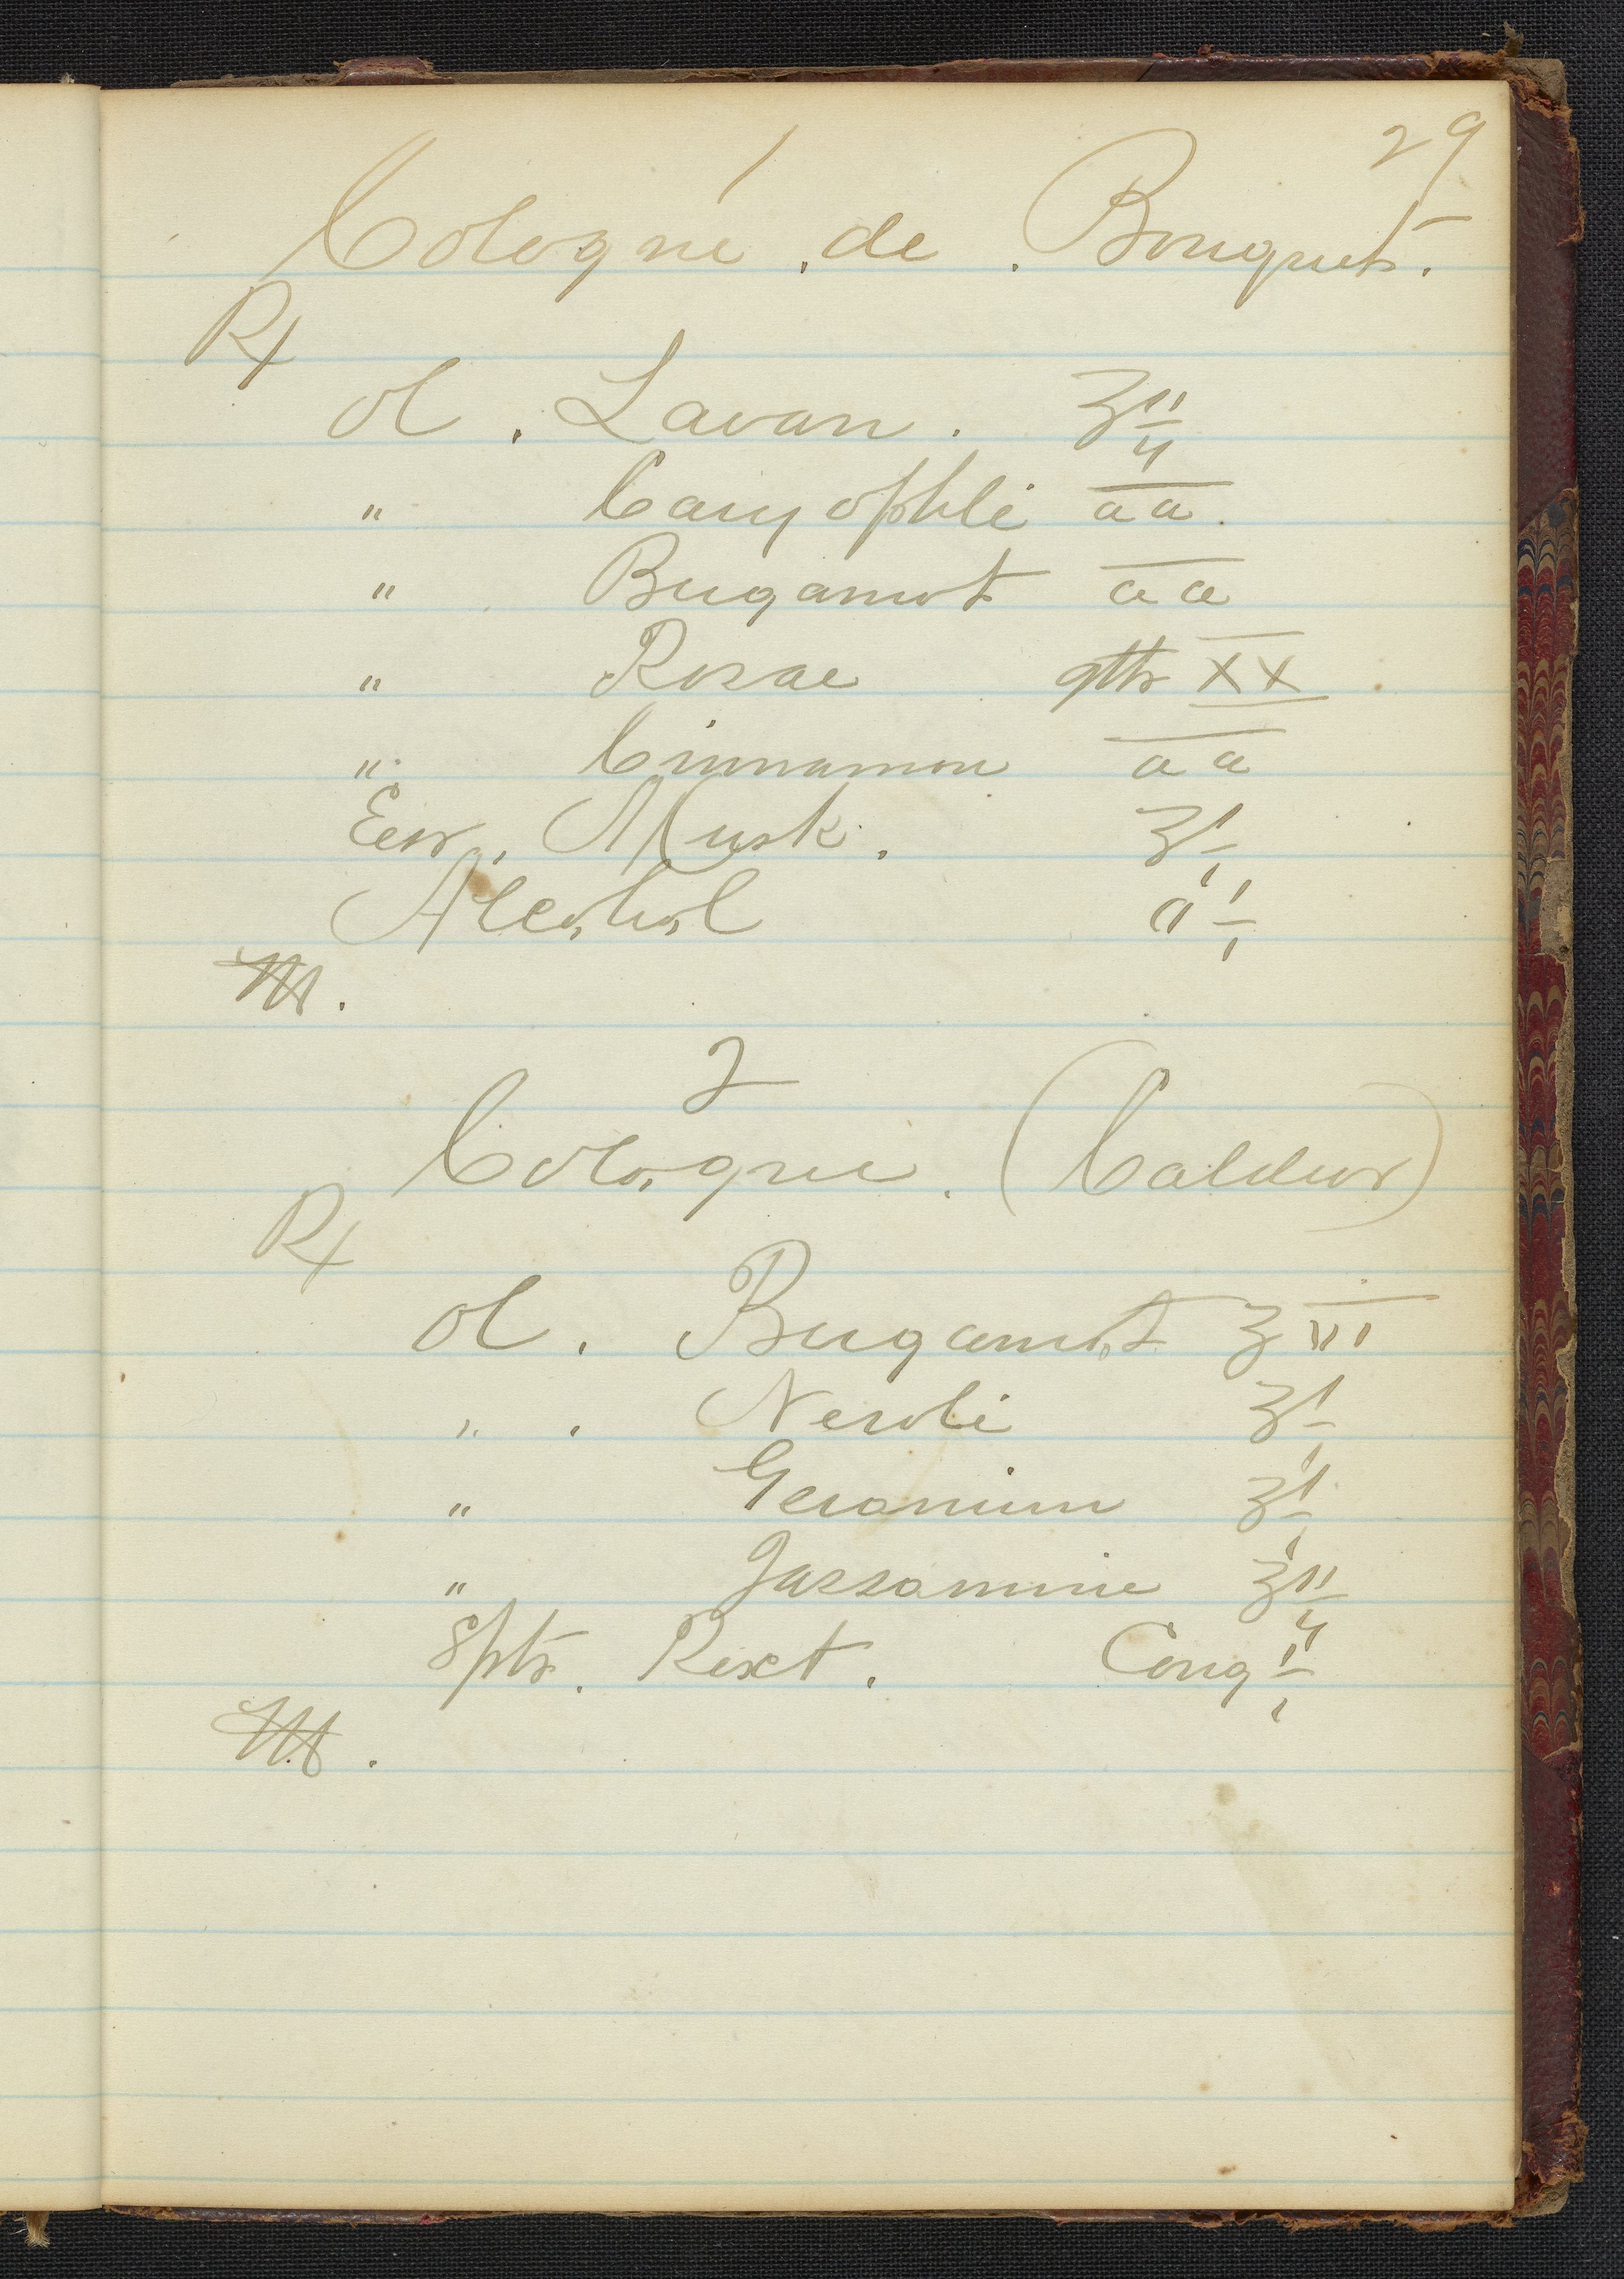 29
1
Cologne . de . Bouquet .
Rx
Ol . Lavan . ʒ ii
" Caryophli āā .
" Burgamot āā
" Rosae gtts XX
" Cinnamon āā
Ess . Musk . ʒ i
Alcohol O i
M .
2
Cologne . (Caldwr)
Rx
Ol . Burgamot ʒ iii
" . Neroli ʒ i
" Geranium ʒ i
" Jassamine ʒ ii
Spts . Rect . Cong i
M .